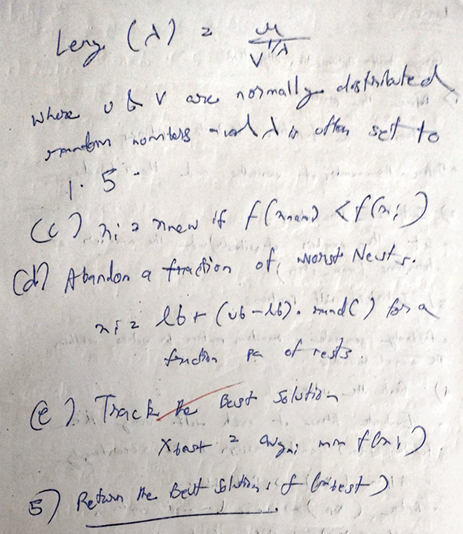 Levy (λ) = u / V^1/λ
where u & v are normally distributed
random numbers and λ is often set to
1.5.
(c) xi = xnew if f(xnew) < f(xi)
(d) Abandon a fraction of worst Nests.
xi = lb + (ub - lb). rand() for a
fraction pa of nests.
(e) Track the Best Solution
Xbest = argxi min f(xi)
5) Return the Best Solution: f(xbest)